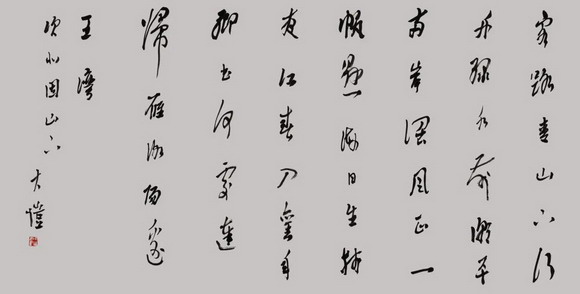 客路青山下行
舟綠水前潮平
兩岸濶風正一
帆懸海日生殘
夜江春入舊年
鄉書何處達
歸雁洛陽邊
王灣
次北固山下 大愷